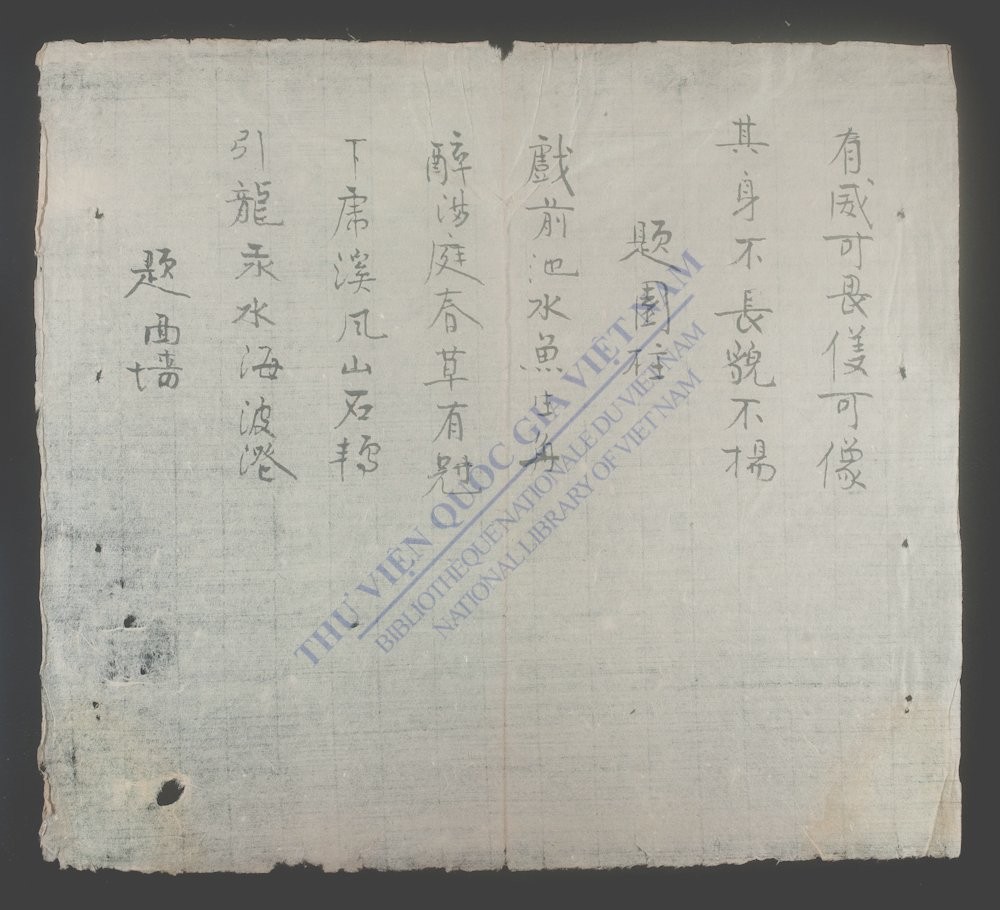 有威可畏儀可像
其身不長貌不揚
題園柱
戲前池水魚生舟
醉涉庭春草有
下虎溪风山石
引龍汞水海波
題西墻
THƯ VIỆN QUỐC GIA VIỆT NAM
BIBLIOTHÈQUE NATIONALE DU VIETNAM
NATIONAL LIBRARY OF VIET NAM